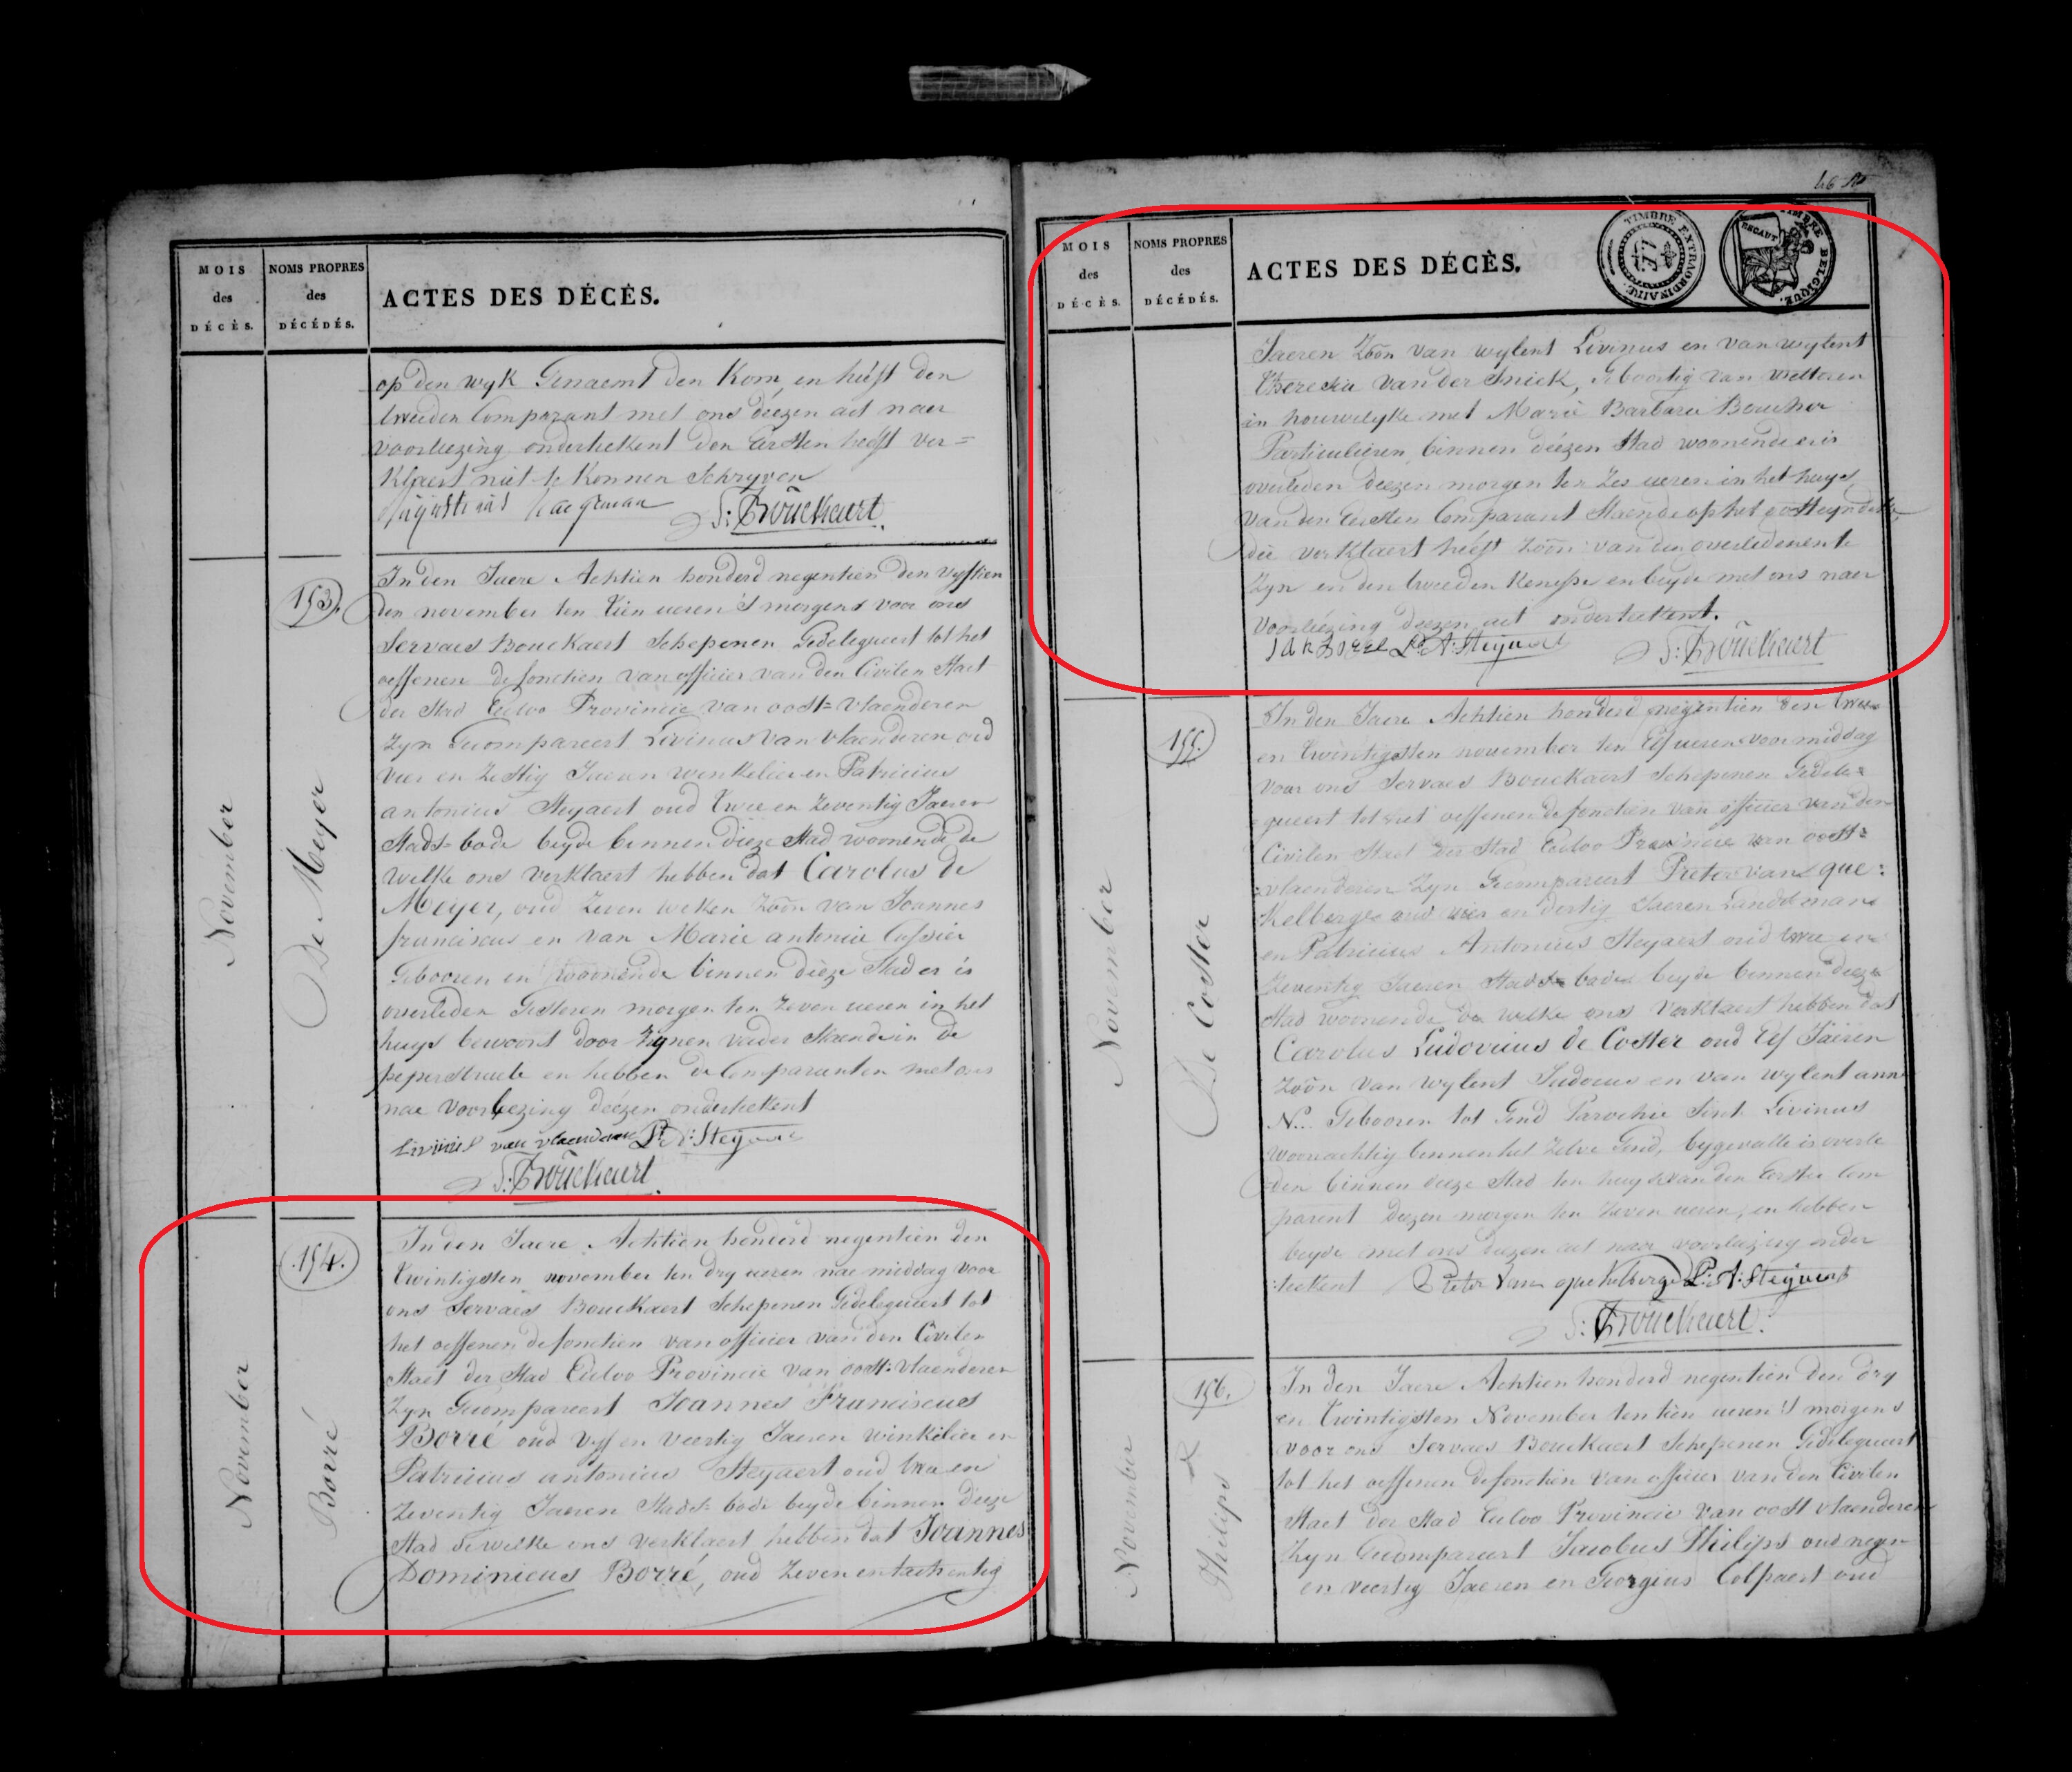 MOIS
des
DÉCÈS.
NOMS PROPRES
des
DÉCÉDÉS.
ACTES DES DÉCÈS.
op den wyk Genaemt den Kom, en heeft den
tweeden Comparant met ons deezen act naer
voorleezing onderteekent den Eersten heeft ver=
Klaert niet te Konnen Schryven
S: Bouckaert.
November
De Meyer
153.
In den Jaere Achtien honderd negentien den vyftien
den november ten tien ueren 's morgens voor ons
Servaes Bouckaert Schepenen Gedelegueert tot het
oeffenen de fonctien van officier van den Civilen Staet
der Stad Eecloo Provincie van oost=vlaenderen
zyn Gecompareert Livinus van vlaenderen oud
vier en zestig Jaeren winkelier en Patricius
antonius Steyaert oud twee en zeventig Jaeren
Stads=bode beyde binnen dieze Stad woonende de
welke ons verklaert hebben dat Carolus de
Meyer, oud zeven weken zoon van Joannes
franciscus en van Marie antonia
Gebooren en woonende binnen dieze Stad er is
overleden Gisteren morgen ten zeven ueren in het
huys bewoont door zynen vader Staende in de
peperstraete en hebben de Comparanten met ons
nae voorleezing deezen onderteekent
Livinus van vlaenderen P: A: Steyaert
S: Bouckaert.
November
Borré
154.
In den Jaere Achtien honderd negentien den
twintigsten november ten dry ueren nae middag voor
ons Servaes Bouckaert Schepenen Gedelegueert tot
het oeffenen de fonctien van officier van den Civilen
Staet der Stad Eecloo Provincie van oost=vlaenderen
zyn Gecompareert Joannes Franciscus
Borré oud vyf en veertig Jaeren winkelier en
Patricius antonius Steyaert oud twee en
zeventig Jaeren Stads=bode beyde binnen dieze
Stad de welke ons verklaert hebben dat Joannes
Dominicus Borré, oud zeven en tachentig
MOIS
des
DÉCÈS.
NOMS PROPRES
des
DÉCÉDÉS.
ACTES DES DÉCÈS.
TIMBRE EXTRAORDINAIRE.
TIMBRE BELGIQUE.
ESCAUT
Jaeren zoon van wylent Livinus en van wylent
Theresia van der Snick, Geboortig van Wetteren
in houwelyke met Marie Barbara
Particulieren, binnen deezen Stad woonende er is
overleden deezen morgen ten zes ueren in het huys
van den Eersten Comparant Staende op het oosteynde
die verklaert heeft zoon van den overledenen te
zyn en den tweeden en beyde met ons naer
voorleezing deezen act onderteekent.
P: A: Steyaert S: Bouckaert
November
De Coster
155.
In den Jaere Achtien honderd negentien den twee
en twintigsten november ten Elf ueren voormiddag
voor ons Servaes Bouckaert Schepenen Gedele=
gueert tot het oeffenen de fonctien van officier van den
Civilen Staet der Stad Eecloo Provincie van oost=
vlaenderen zyn Gecompareert Pieter van que:
kelberge oud vier en dertig Jaeren Landsman
en Patricius Antonius Steyaert oud twee en
zeventig Jaeren Stads=bode beyde binnen dieze
Stad woonende de welke ons verklaert hebben dat
Carolus Ludovicus de Coster oud Elf Jaeren
zoon van wylent Judocus en van wylent anne
N.. Gebooren tot Gend Parochie Sint Livinus
woonachtig binnen het zelve Gend, bygevalle is overle
den binnen dieze Stad ten huyse van den Eersten Com
parent deezen morgen ten zeven ueren, en hebben
beyde met ons deezen act naer voorleezing onder
teekent Pieter van quekelberge P: A: Steyaert
S: Bouckaert.
November
Philips
156.
In den Jaere Achtien honderd negentien den dry
en twintigsten November ten tien ueren 's morgens
voor ons Servaes Bouckaert Schepenen Gedelegueert
tot het oeffenen de fonctien van officier van den Civilen
Staet der Stad Eecloo Provincie van oost vlaenderen
zyn Gecompareert Jacobus Philips oud negen
en veertig Jaeren en Georgius Colpaert oud